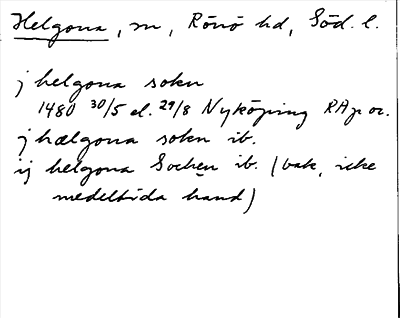 Helgona, m, Rönö hd, Söd. l.
j helgona sokn
1480 30/5 el. 29/8 Nyköping RAp or.
j hælgona sokn ib.
ij helgona Sochen ib. (bak, icke
medeltida hand)